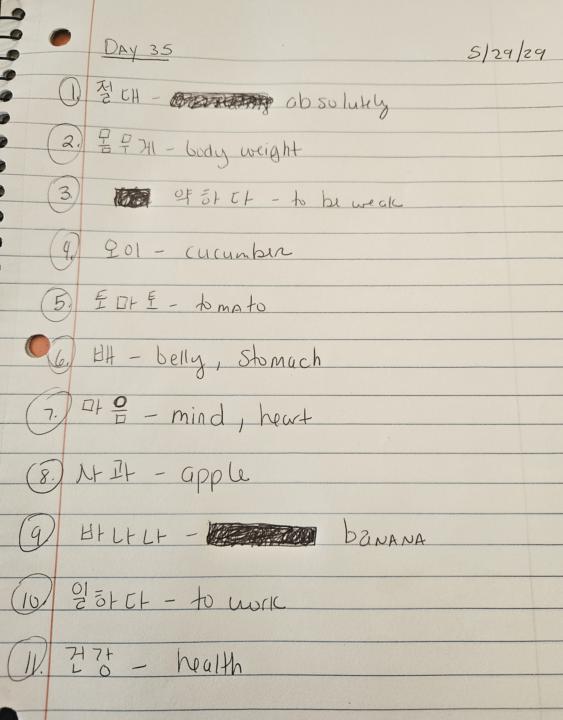 DAY 35 5/29/29
1. 절대 - absolutely
2. 몸무게 - body weight
3. 약하다 - to be weak
4. 오이 - cucumber
5. 토마토 - tomato
6. 배 - belly, stomach
7. 마음 - mind, heart
8. 사과 - apple
9 바나나 - baNANA
10. 일하다 - to work
11. 건강 - health